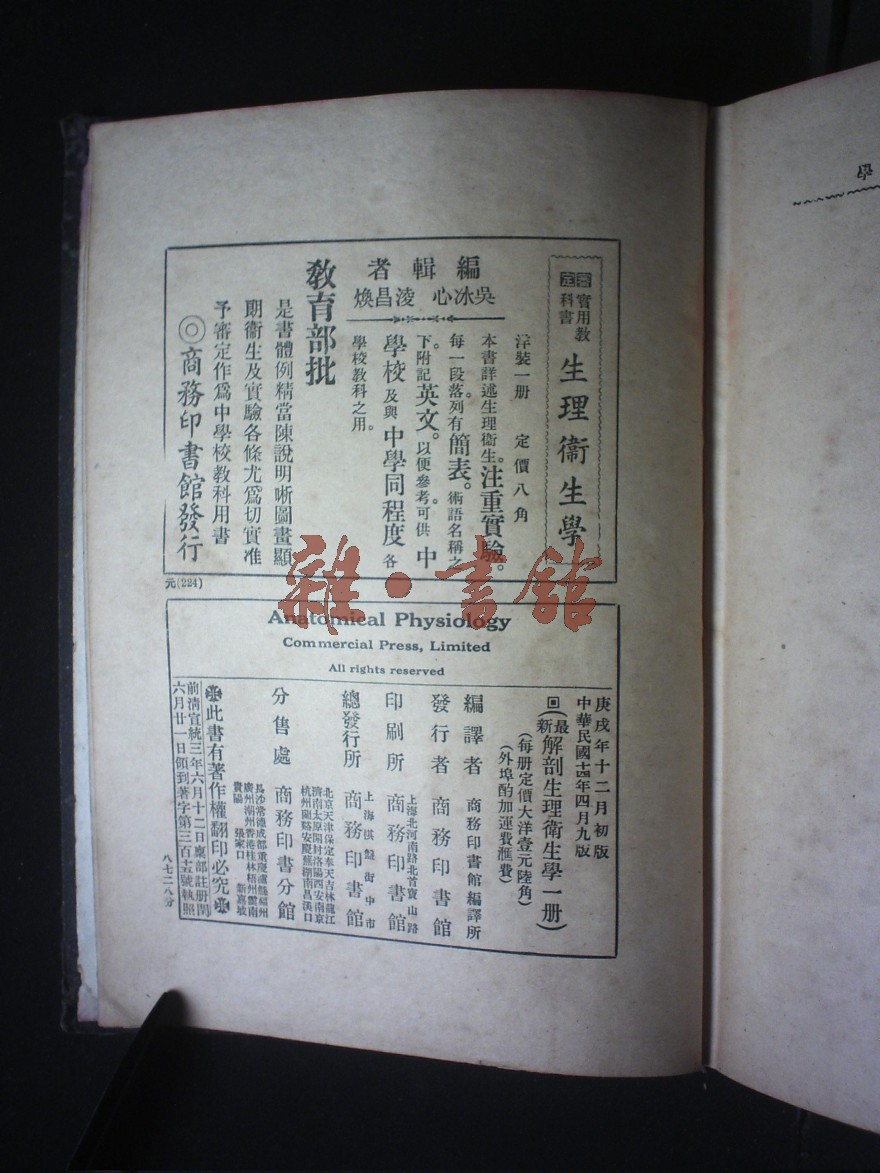 審定
實用教科書
生理衞生學
洋裝一册　定價八角
本書詳述生理衞生。注重實驗。
每一段落列有簡表。術語名稱之
下附記英文。以便參考。可供中
學校及與中學同程度各
學校教科之用。
編輯者
吳冰心　淩昌煥
教育部批
是書體例精當陳說明晰圖畫顯
朗衞生及實驗各條尤爲切實准
予審定作爲中學校教科用書
◎商務印書館發行
元(224)
雜·書館
Anatomical Physiology
Commercial Press, Limited
All rights reserved
庚戌年十二月初版
中華民國十四年四月九版
回(最新解剖生理衞生學一册)
(每册定價大洋壹元陸角)
(外埠酌加運費匯費)
編譯者　商務印書館編譯所
發行者　商務印書館
上海北河南路北首寶山路
印刷所　商務印書館
上海棋盤街中市
總發行所　商務印書館
北京天津保定奉天吉林龍江
濟南太原開封洛陽西安南京
杭州蘭谿安慶蕪湖南昌漢口
分售處　商務印書分館
長沙常德成都重慶瀘縣福州
廣州潮州香港桂林梧州雲南
貴陽　張家口　新嘉坡
※此書有著作權翻印必究※
前清宣統三年六月十二日稟部註册閏
六月廿一日領到著字第三百十五號執照
八七二八分
學